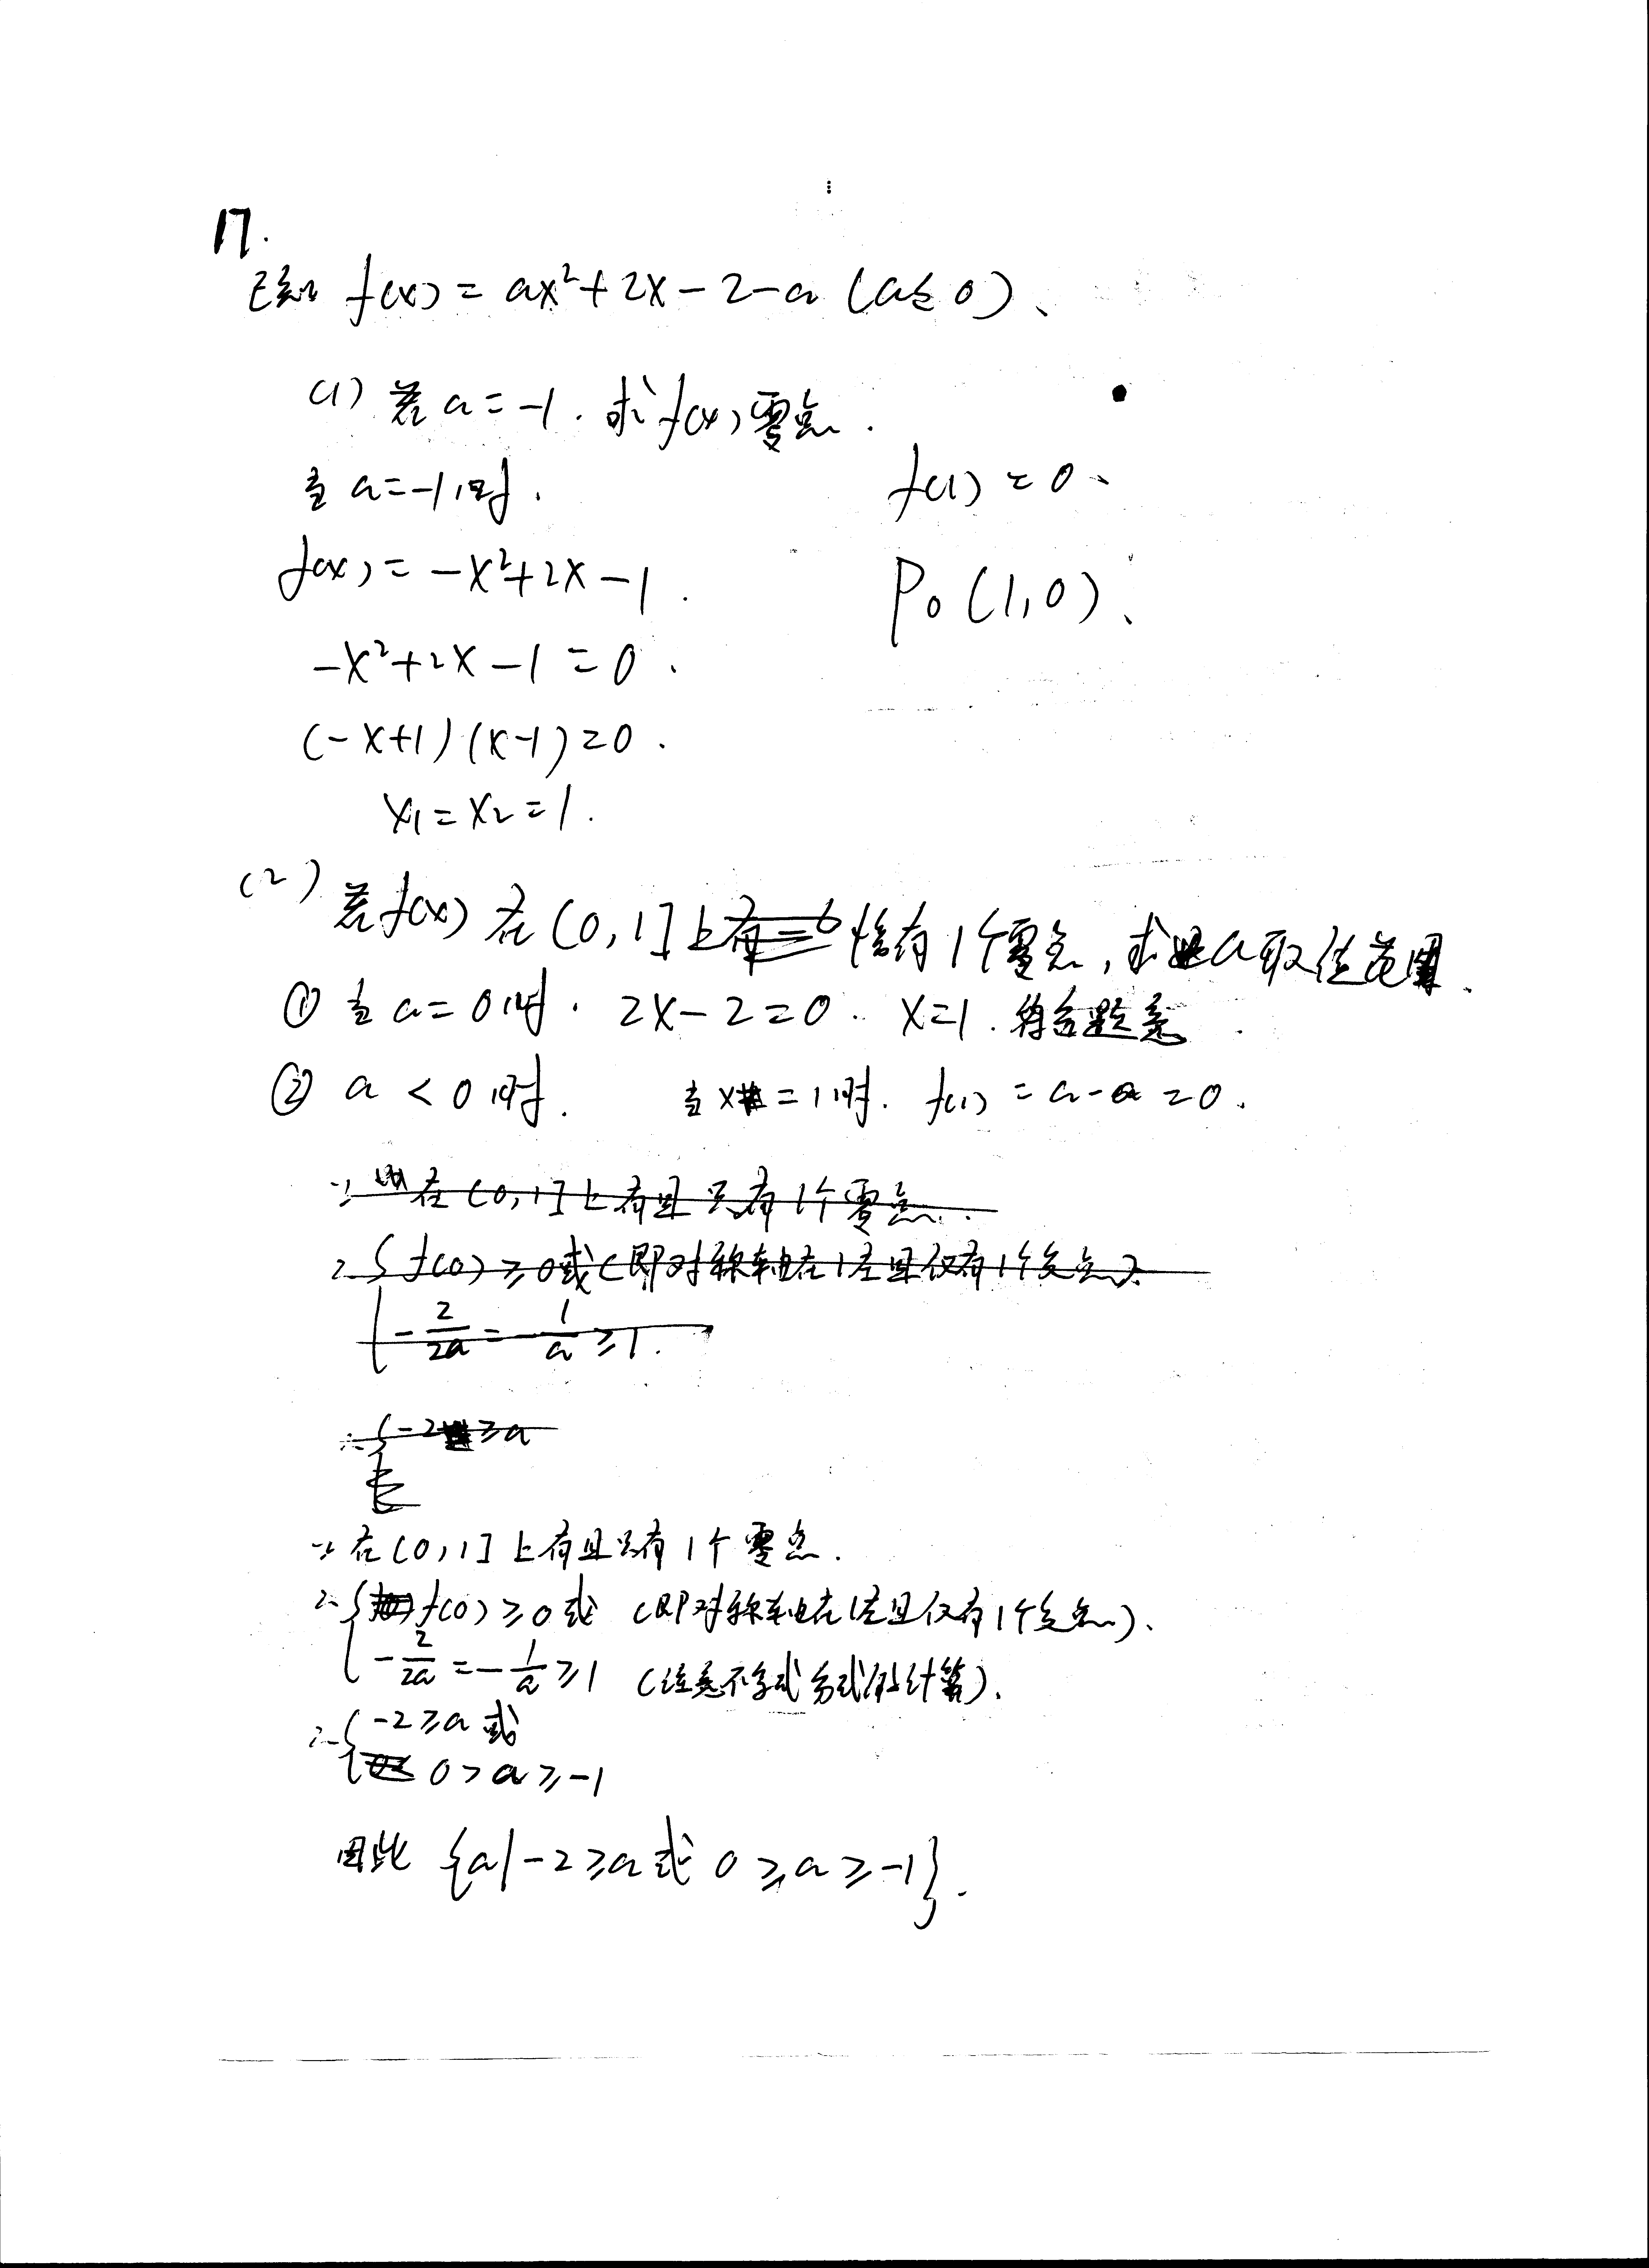 17.
已知 f(x) = ax²+2x-2-a (a≤0)、
(1) 若 a=-1. 求 f(x) 零点.
当 a=-1时.
f(x) = -x²+2x-1.
-x²+2x-1=0.
(-x+1)(x-1)=0.
x₁=x₂=1.
f(1)=0.
P₀(1,0)、
(2) 若f(x) 在(0,1]上有 恰有1个零点, 求a取值范围.
① 当 a=0时. 2x-2=0. x=1. 符合题意.
② a<0时. 当x=1时. f(1)=a-a=0.
∵ 在(0,1]上有且只有1个零点.
∴{f(0)≥0或(即对称轴在1左且仅有1个交点).
-2/2a=-1/a≥1.
∴{-2≥a
∵在(0,1]上有且只有1个零点.
∴{f(0)≥0或 (即对称轴在1左且仅有1个交点)、
-2/2a=-1/a≥1 (注意不等式分式的计算)、
∴{-2≥a 或
0>a≥-1
因此 {a|-2≥a或 0≥a≥-1}.